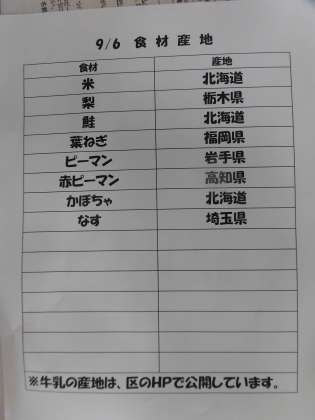 9/6 食材産地
食材 産地
米 北海道
梨 栃木県
鮭 北海道
葉ねぎ 福岡県
ピーマン 岩手県
赤ピーマン 高知県
かぼちゃ 北海道
なす 埼玉県
※牛乳の産地は、区のHPで公開しています。